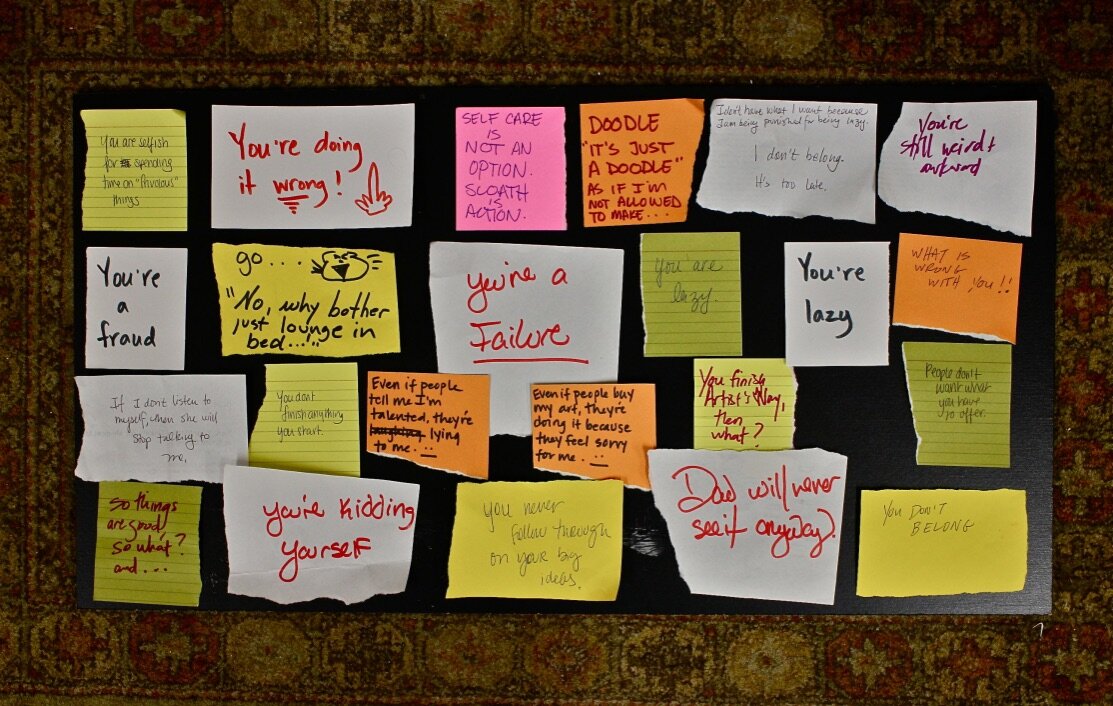 You are selfish
for spending
time on "frivolous"
things
You're doing
it wrong!
SELF CARE
IS
NOT AN
OPTION.
SLOATH
IS
ACTION.
DOODLE
"IT'S JUST
A DOODLE"
AS IF I'M
NOT ALLOWED
TO MAKE...
I don't have what I want because
I am being punished for being lazy.
I don't belong.
It's too late.
You're
still weird +
awkward
You're
a
fraud
go....
"No, why bother
just lounge in
bed..."
you're a
Failure
you are
lazy.
You're
lazy
WHAT IS
WRONG
WITH YOU!!
If I don't listen to
myself, then she will
stop talking to
me.
You dont
finish anything
you start.
Even if people
tell me I'm
talented, they're
lying
to me.
Even if people buy
my art, they're
doing it because
they feel sorry
for me.
You finish
Artist's Way,
then
what?
People don't
want what
you have
to offer.
So things
are good,
so what?
and...
you're kidding
yourself
you never
follow through
on your big
ideas.
Dad will never
see it anyway.
YOU DON'T
BELONG